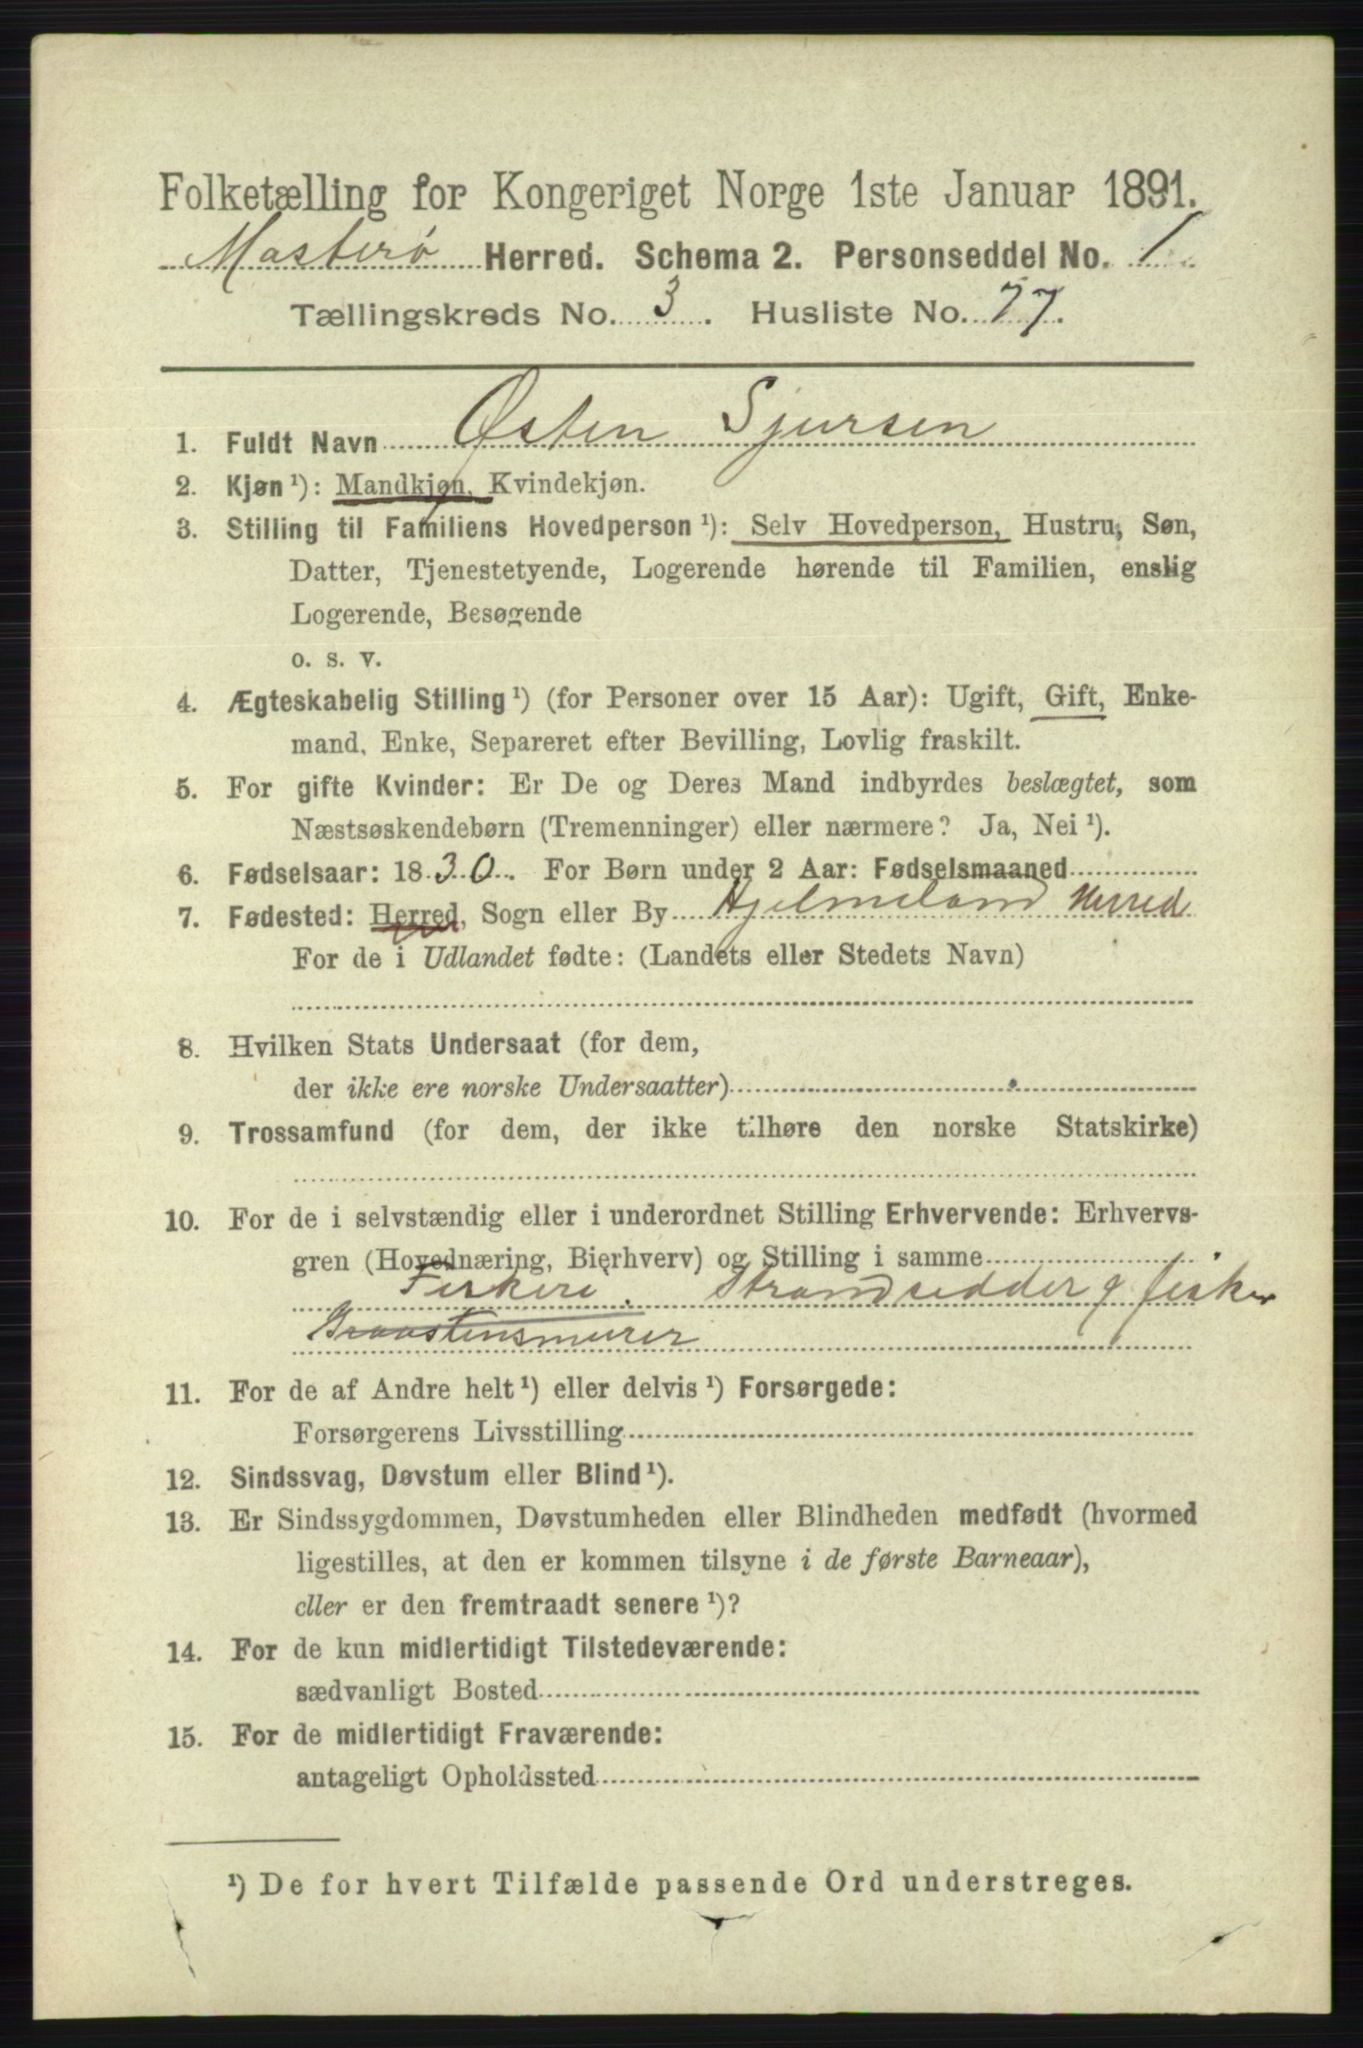 Folketælling for Kongeriget Norge 1ste Januar 1891.
Mosterø Herred. Schema 2. Personseddel No. 1
Tællingskreds No. 3. Husliste No. 77.
1. Fuldt Navn Østen Sjursen
2. Kjøn¹): Mandkjøn, Kvindekjøn.
3. Stilling til Familiens Hovedperson¹): Selv Hovedperson, Hustru, Søn,
Datter, Tjenestetyende, Logerende hørende til Familien, enslig
Logerende, Besøgende
o. s. v.
4. Ægteskabelig Stilling¹) (for Personer over 15 Aar): Ugift, Gift, Enke-
mand, Enke, Separeret efter Bevilling, Lovlig fraskilt.
5. For gifte Kvinder: Er De og Deres Mand indbyrdes beslægtet, som
Næstsøskendebørn (Tremenninger) eller nærmere? Ja, Nei¹).
6. Fødselsaar: 1830. For Børn under 2 Aar: Fødselsmaaned
7. Fødested: Herred, Sogn eller By Hjelmeland Herred
For de i Udlandet fødte: (Landets eller Stedets Navn)
8. Hvilken Stats Undersaat (for dem,
der ikke ere norske Undersaatter)
9. Trossamfund (for dem, der ikke tilhøre den norske Statskirke)
10. For de i selvstændig eller i underordnet Stilling Erhvervende: Erhvervs-
gren (Hovednæring, Bierhverv) og Stilling i samme
Fiskeri. Strandsidder g fisker
Graastensmurer
11. For de af Andre helt¹) eller delvis¹) Forsørgede:
Forsørgerens Livsstilling
12. Sindssvag, Døvstum eller Blind¹).
13. Er Sindssygdommen, Døvstumheden eller Blindheden medfødt (hvormed
ligestilles, at den er kommen tilsyne i de første Barneaar),
eller er den fremtraadt senere¹)?
14. For de kun midlertidigt Tilstedeværende:
sædvanligt Bosted
15. For de midlertidigt Fraværende:
antageligt Opholdssted
¹) De for hvert Tilfælde passende Ord understreges.